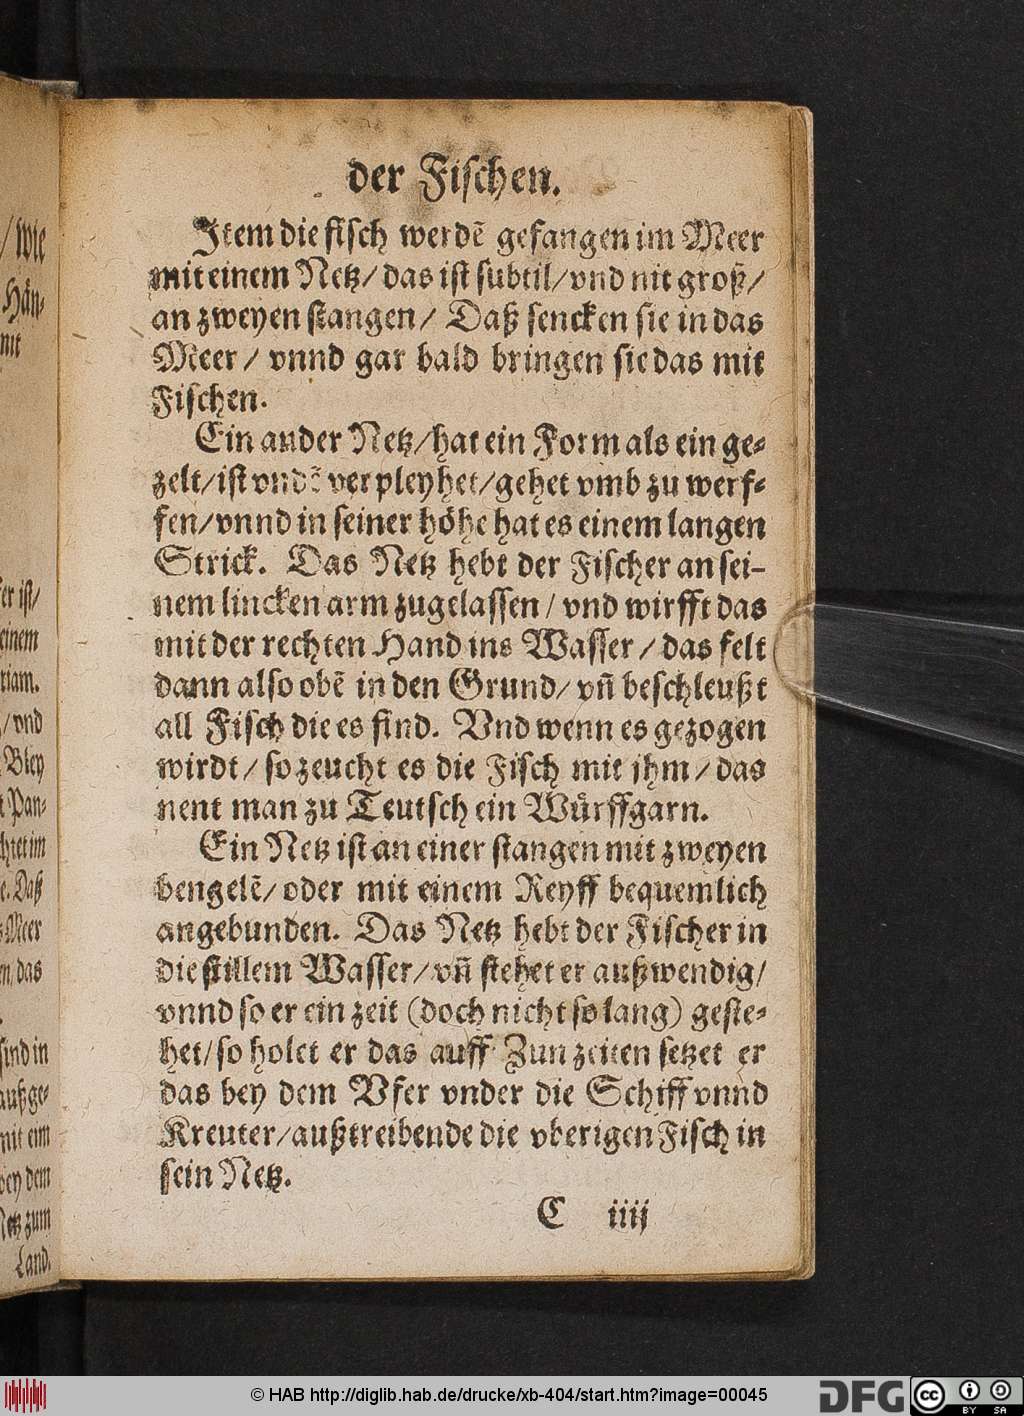 der Fischen.
Item die fisch werdẽ gefangen im Meer
mit einem Netz/ das ist subtil/ vnd nit groß/
an zweyen stangen/ Daß sencken sie in das
Meer/ vnnd gar bald bringen sie das mit
Fischen.
Ein ander Netz/ hat ein Form als ein ge-
zelt/ ist vndẽ verpleyhet/ gehet vmb zu werf-
fen/ vnnd in seiner höhe hat es einem langen
Strick. Das Netz hebt der Fischer an sei-
nem lincken arm zugelassen/ vnd wirfft das
mit der rechten Hand ins Wasser/ das felt
dann also obẽ in den Grund/ vñ beschleußt
all Fisch die es find. Vnd wenn es gezogen
wirdt/ so zeucht es die Fisch mit jhm/ das
nent man zu Teutsch ein Würffgarn.
Ein Netz ist an einer stangen mit zweyen
bengelẽ/ oder mit einem Reyff bequemlich
angebunden. Das Netz hebt der Fischer in
die stillem Wasser/ vñ stehet er außwendig/
vnnd so er ein zeit (doch nicht so lang) geste-
het/ so holet er das auff Zun zeiten setzet er
das bey dem Vfer vnder die Schiff vnnd
Kreuter/ außtreibende die vberigen Fisch in
sein Netz.
C iiij
/ wie
Hän-
mit
er ist/
einem
riam.
/ vnd
Bley
Pan-
chtet im
e. Daß
Meer
en/ das
sind in
außge-
mit eim
bey dem
Netz zum
Land.
© HAB http://diglib.hab.de/drucke/xb-404/start.htm?image=00045
DFG
cc BY SA